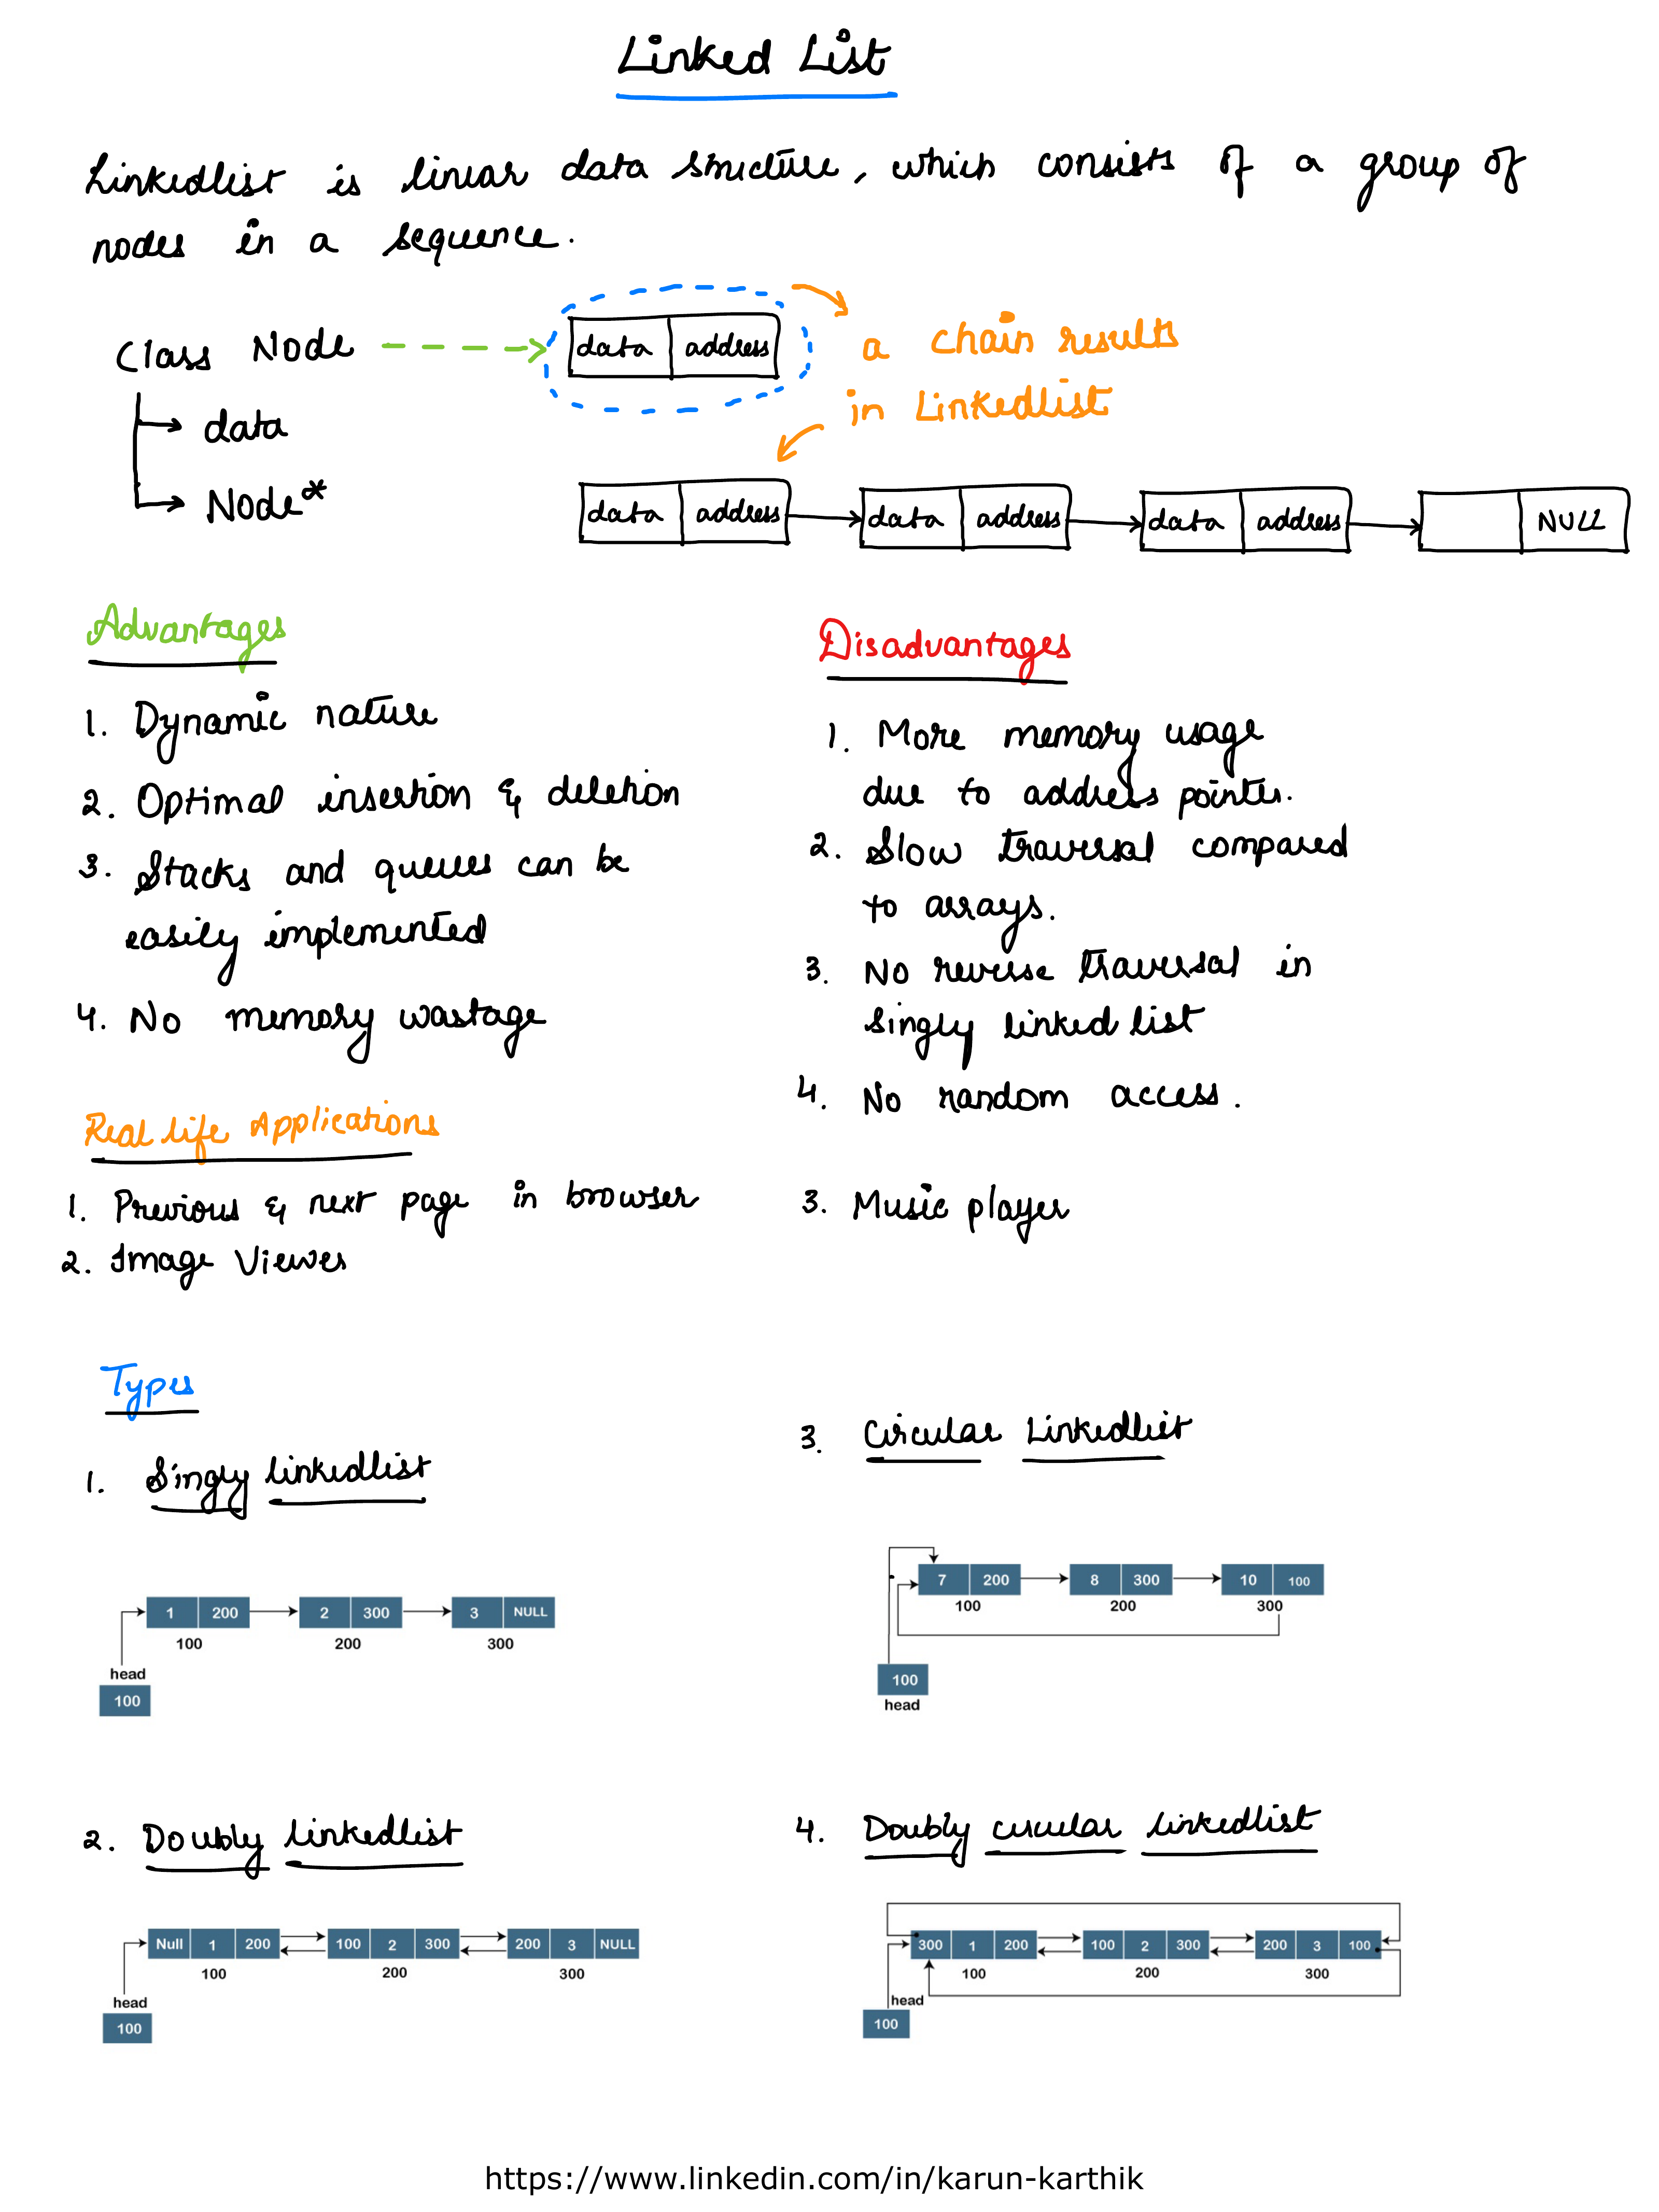 Linked List
Linkedlist is linear data structure, which consists of a group of
nodes in a sequence.
Class Node
data address
a chain results
in Linkedlist
data
Node*
data address data address data address NULL
Advantages
1. Dynamic nature
2. Optimal insertion & deletion
3. Stacks and queues can be
easily implemented
4. No memory wastage
Disadvantages
1. More memory usage
due to address pointer.
2. Slow traversal compared
to arrays.
3. No reverse traversal in
singly linked list
4. No random access.
Real life Applications
1. Previous & next page in browser
2. Image Viewer
3. Music player
Types
1. Singly linkedlist
1 200 2 300 3 NULL
100 200 300
head
100
2. Doubly linkedlist
Null 1 200 100 2 300 200 3 NULL
100 200 300
head
100
3. Circular Linkedlist
7 200 8 300 10 100
100 200 300
100
head
4. Doubly circular linkedlist
300 1 200 100 2 300 200 3 100
100 200 300
head
100
https://www.linkedin.com/in/karun-karthik